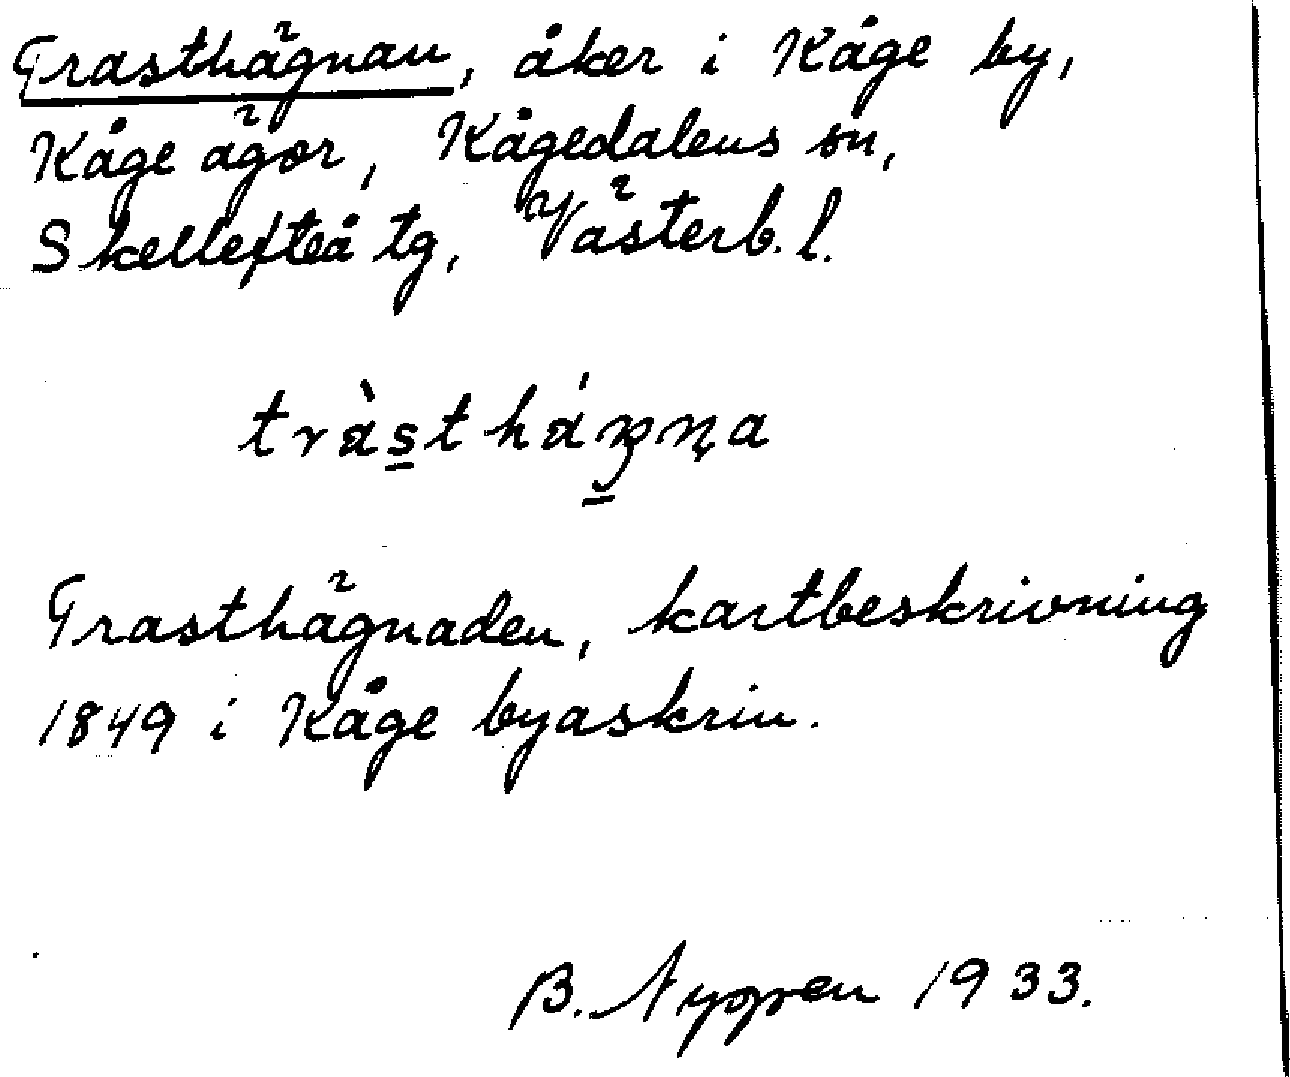 Trasthägnan, åker i Kåge by,
Kåge ägor, Kågedalens sn,
Skellefteå tg, Västerb. l.
tràs̲thán̲n̥a
Trasthägnaden, kartbeskrivning
1849 i Kåge byaskrin.
B. Nygren 1933.